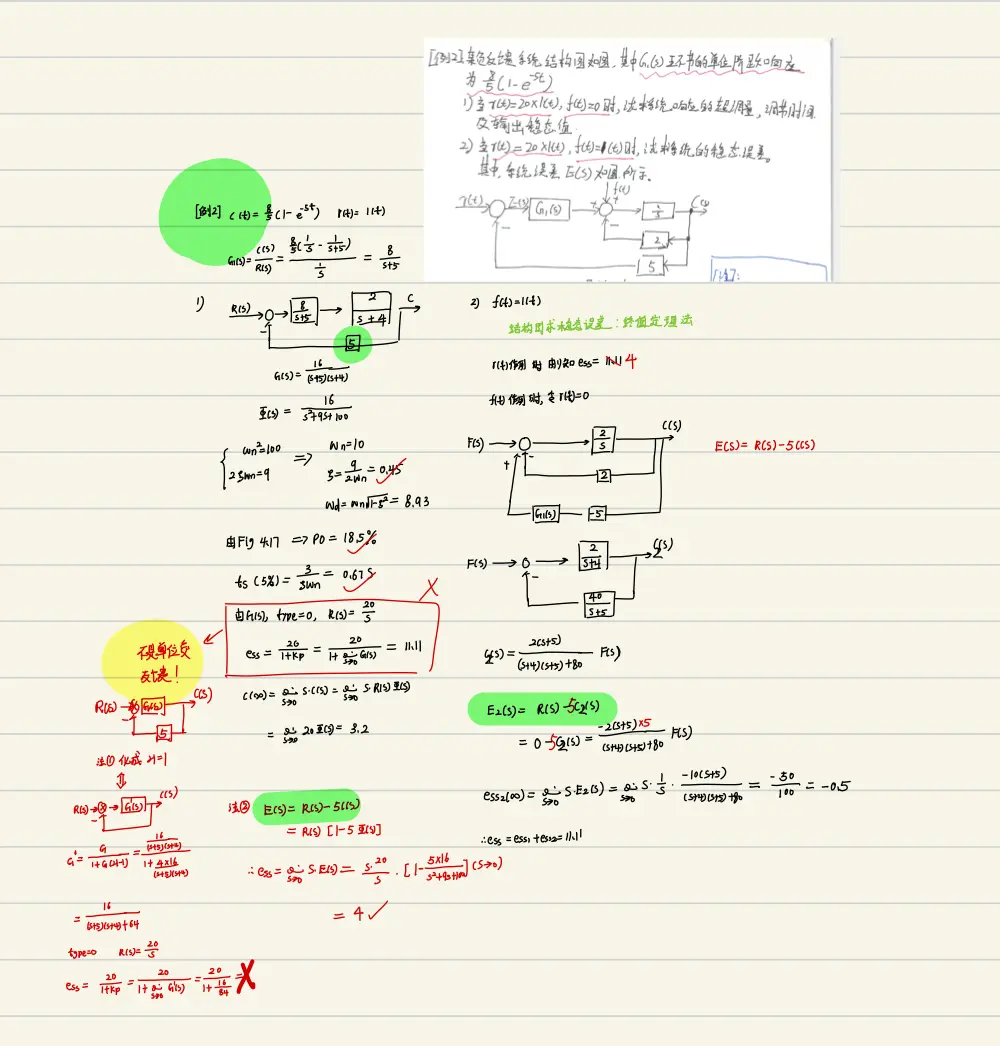 [例2] 某负反馈系统结构图如图,其中G₁(s)环节的单位阶跃响应
为 8/5(1-e^-5t)
1) 当r(t)=20×1(t), f(t)=0时,试求系统响应的超调量,调节时间
及输出稳态值.
2) 当r(t)=20×1(t), f(t)=1(t)时,试求系统的稳态误差.
其中,系统误差E(s)如图所示.
f(t)
r(t) E(s) G₁(s) + + C(s)
- -
2
5
[例2] C(t)=8/5(1-e^-5t) r(t)=1(t)
G₁(s)=C(s)/R(s)=8/5(1/s-1/(s+5))/(1/s)=8/(s+5)
1)
R(s) 8/(s+5) 2/(s+4) C
- 5
G(s)=16/((s+5)(s+4))
Φ(s)=16/(s²+9s+100)
ωn²=100 => ωn=10
2ζωn=9 ζ=9/(2ωn)=0.45
ωd=ωn√(1-ζ²)=8.93
由Fig 4.17 => PO=18.5%
ts(5%)=3/(ζωn)=0.67s
X
由G(s), type=0, R(s)=20/s
ess=20/(1+Kp)=20/(1+lim s→0 G(s))=11.11
C(∞)=lim s→0 s·C(s)=lim s→0 s·R(s)Φ(s)
=lim s→0 20Φ(s)=3.2
不是单位负
反馈!
R(s) G(s) C(s)
- 5
法① 化成H=1
R(s) G'(s) C(s)
-
G'=G/(1+G(H-1))=(16/((s+5)(s+4)))/(1+4×16/((s+5)(s+4)))
=16/((s+5)(s+4)+64)
type=0 R(s)=20/s
ess=20/(1+Kp)=20/(1+lim s→0 G'(s))=20/(1+16/84)=X
法② E(s)=R(s)-5C(s)
=R(s)[1-5Φ(s)]
∴ess=lim s→0 s·E(s)=s·20/s·[1-5×16/(s²+9s+100)](s→0)
=4 ✓
2) f(t)=1(t)
结构图求稳态误差:终值定理法
r(t)作用时 由1)知ess=11.11 4
f(t)作用时,令r(t)=0
F(s) 2/s C(s)
+ - 2
G₁(s) -5
E(s)=R(s)-5C(s)
F(s) 2/(s+4) C₂(s)
- 40/(s+5)
C₂(s)=2(s+5)/((s+4)(s+5)+80) F(s)
E₂(s)=R(s)-5C₂(s)
=0-5C₂(s)=-2(s+5)×5/((s+4)(s+5)+80) F(s)
ess₂(∞)=lim s→0 s·E₂(s)=lim s→0 s·1/s·-10(s+5)/((s+4)(s+5)+80)=-50/100=-0.5
∴ess=ess₁+ess₂=11.11